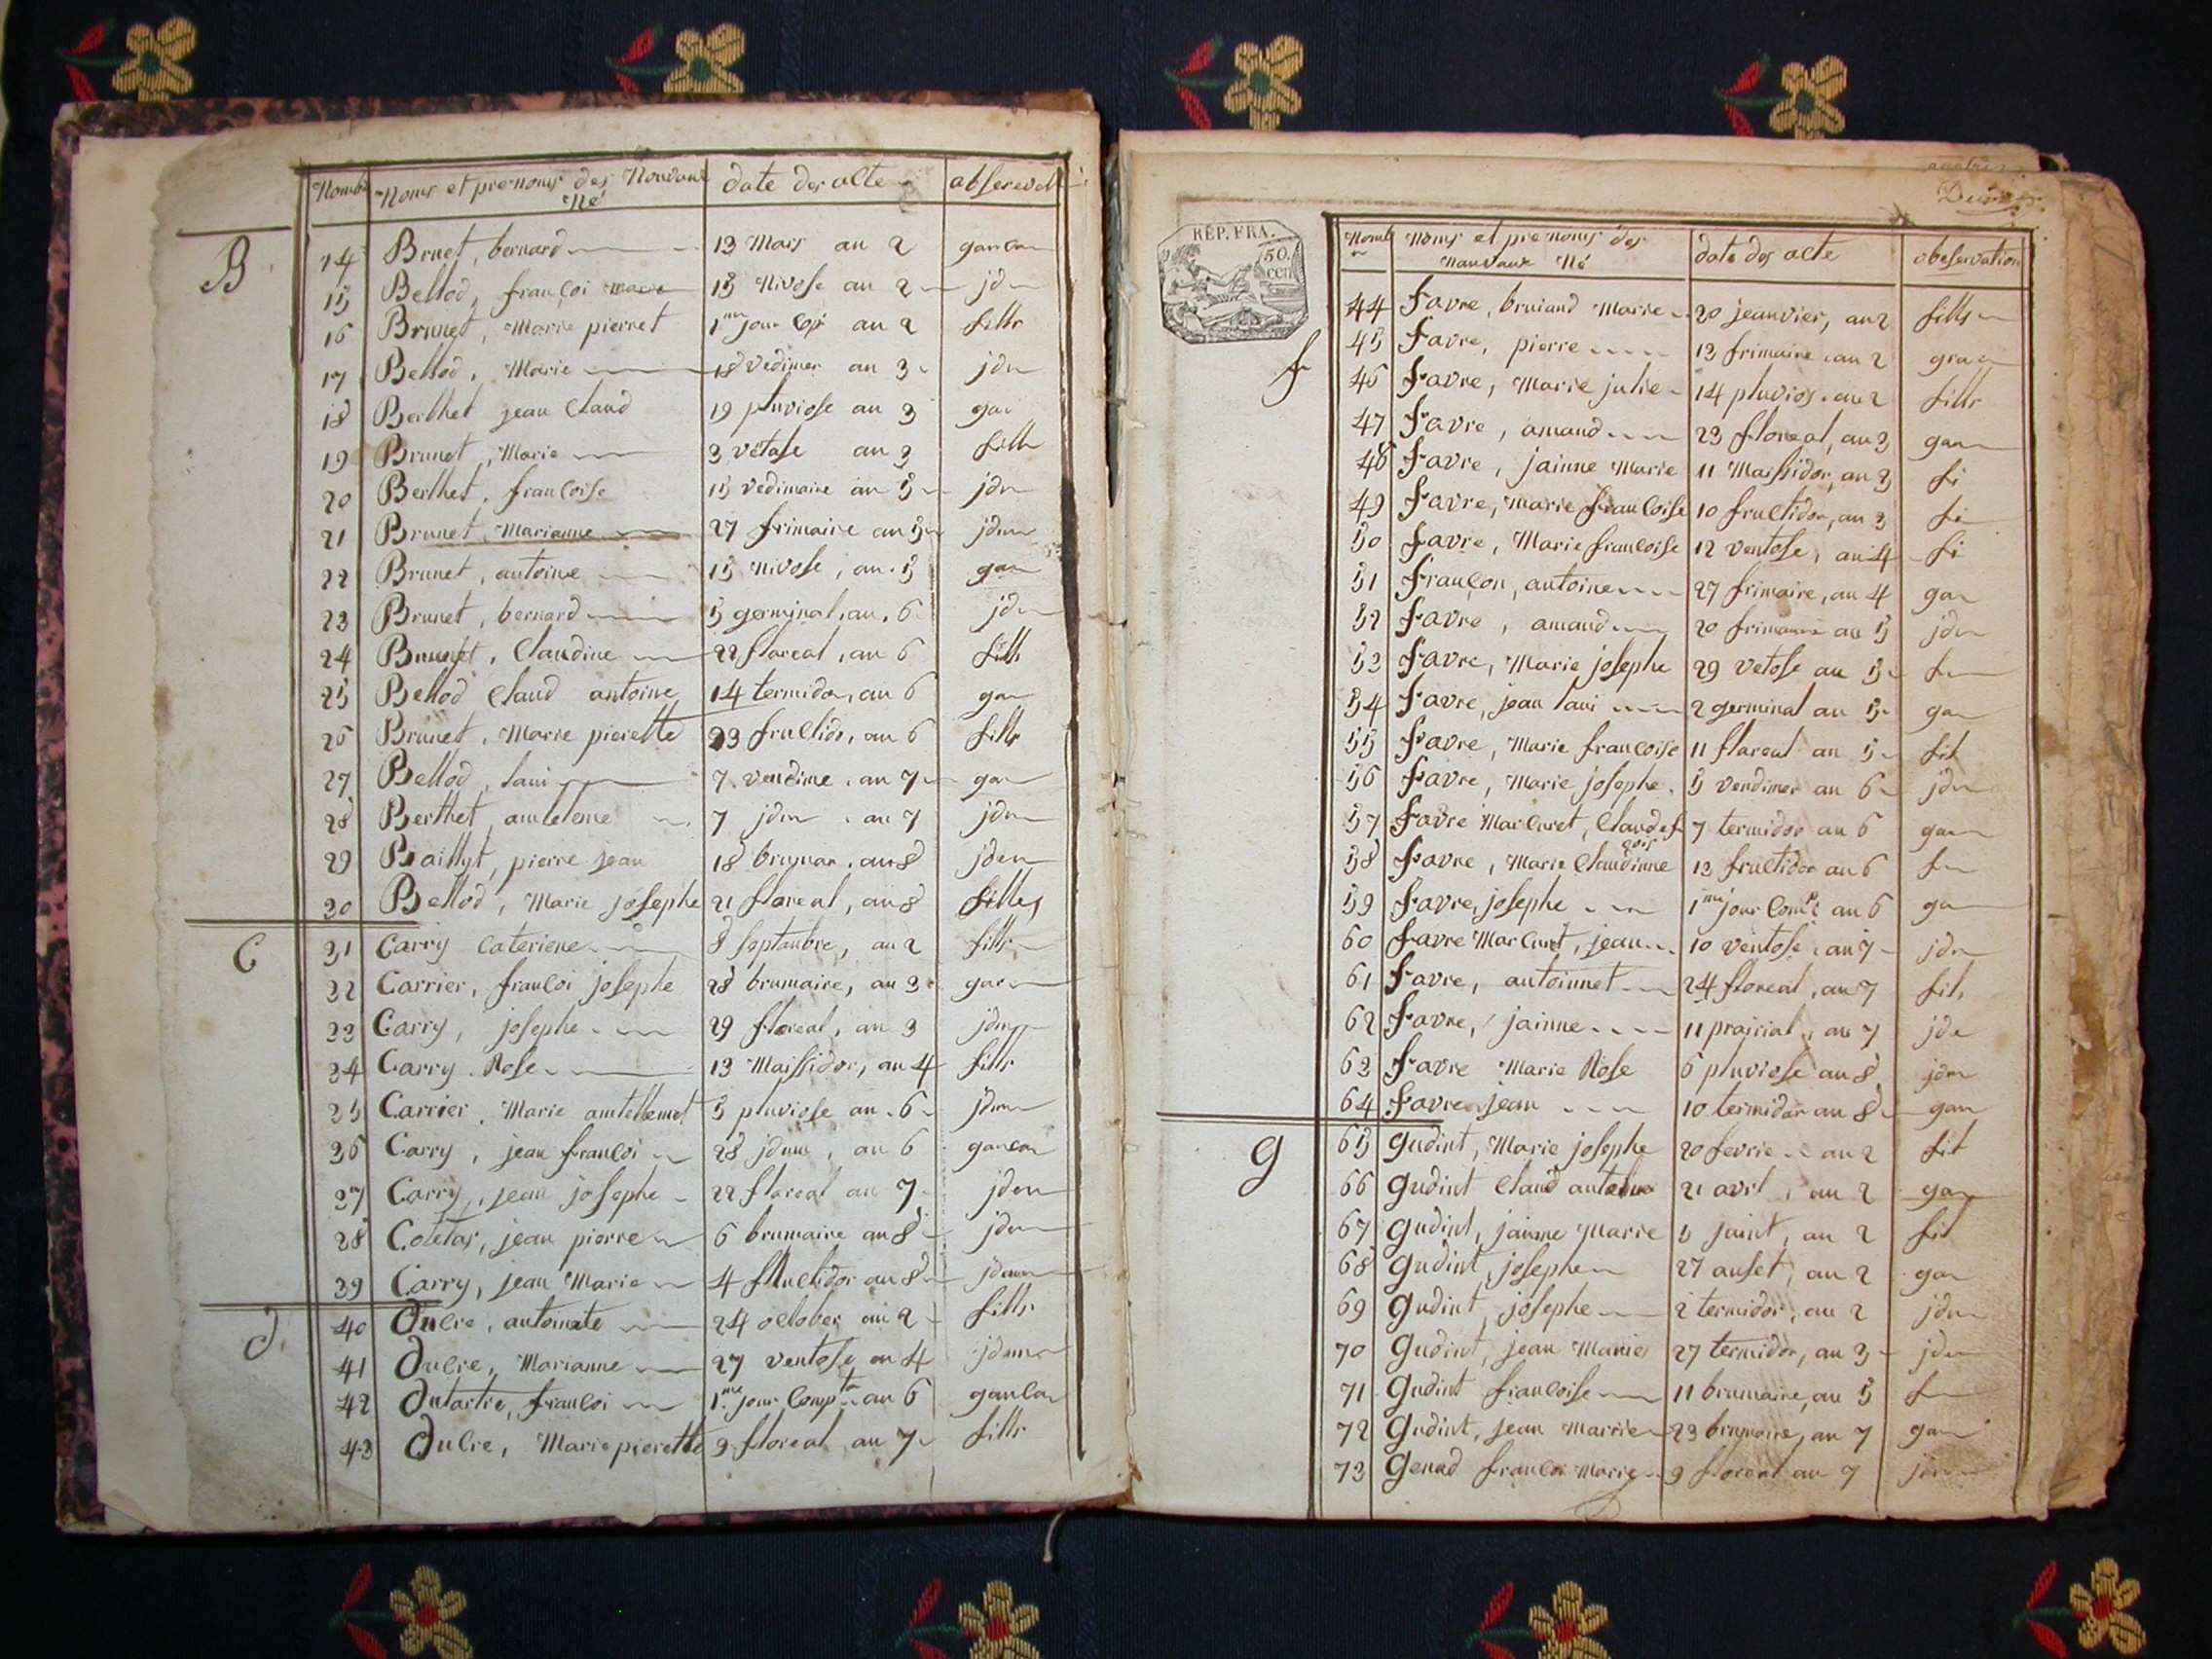 Nombr Noms et prenoms des Nouvaux Né date des acte observat
B
14 Brnet, bernard 13 Mars an 2 garcon
15 Bellod, françoi marie 15 Nivose an 2 jdm
16 Brunet, Marie pierret 1er jour Cop an 2 fille
17 Bellod, Marie 18 vedimer an 3 jdm
18 Berthet jean Claud 19 pluviose an 3 gar
19 Brunet, Marie 3 vetose an 3 fille
20 Berthet, françoise 15 vedimaire an 5 jdm
21 Brunet, Marianne 27 frimaire an 5 jdm
22 Brunet, antoine 15 nivose, an 5 gar
23 Brunet, bernard 5 germinal, an 6 jdm
24 Brunet, Claudine 22 floreal, an 6 fille
25 Bellod Claud antoine 14 termidor, an 6 gar
26 Brunet, Marie pierette 23 fructido, an 6 fille
27 Bellod, laui 7 vendime, an 7 gar
28 Berthet, anteleme 7 jdm, an 7 jdm
29 Baillyt, pierre jean 18 brumar, an 8 jdem
30 Bellod, Marie josephe 21 floreal, an 8 filles
C
31 Carry Cateriene 8 septanbre, an 2 fille
32 Carrier, françoi josephe 28 brumaire, an 3 garcon
33 Carry, josephe 29 floreal, an 3 jdm
34 Carry Rose 13 Maissidor, an 4 fille
35 Carrier, Marie antellemet 5 pluviose an 6 jdm
36 Carry, jean françoi 28 jdem, an 6 garcon
37 Carry, jean josephe 22 floreal an 7 jdem
38 Coletas, jean pierre 6 brumaire an 8 jdem
39 Carry, jean Marie 4 fructidor an 8 jdem
D
40 Ducre, antoinete 24 october an 2 fille
41 Ducre, Marianne 27 ventose, an 4 jdem
42 Dutartre, françoi 1me jour Compte an 6 garcon
43 Ducre, Marie pierette 9 floreal an 7 fille
Deux
RÉP. FRA.
50. cen
Nomb Noms et prenoms des nauvaux Né date des acte observation
F
44 Favre, bruiand Marie 20 jeanvier, an 2 fille
45 Favre, pierre 13 frimaire an 2 gra
46 Favre, Marie julie 14 pluvios an 2 fille
47 Favre, amand 23 floreal, an 3 gar
48 Favre, jainne Marie 11 Maissidor, an 3 fi
49 Favre, Marie françoise 10 fructidor, an 3 fi
50 Favre, Marie françoise 12 ventose, an 4 fi
51 Françon, antoine 27 frimaire, an 4 gar
52 Favre, amand 20 frimaire an 5 jdm
53 Favre, Marie josephe 29 vetose an 5 f
54 Favre, jean laui 2 germinal an 5 gar
55 Favre, Marie françoise 11 floreal an 5 fil
56 Favre, Marie josephe 5 vendimer an 6 jdm
57 Favre Marcuret, Claude f çois 7 termidor an 6 gar
58 Favre, Marie Claudinne 13 fructidor an 6 f
59 Favre, josephe 1me jour Compt an 6 ga
60 Favre Marcuret, jean 10 ventose an 7 jdm
61 Favre, antoinnet 24 floreal, an 7 fil
62 Favre, jainne 11 prairial, an 7 jde
63 Favre Marie Rose 6 pluviose an 8 jdm
64 Favre jean 10 termidor an 8 gar
G
65 Gudint, Marie josephe 20 fevrie an 2 fil
66 Gudint Claud antelme 21 avrl, an 2 gar
67 Gudint, jainne Marie 5 juint, an 2 fil
68 Gudint, josephe 27 auset, an 2 gar
69 Gudint, josephe 2 termidor, an 2 jdm
70 Gudint, jean Marie 27 termidor, an 3 jdm
71 Gudint françoise 11 brumaire, an 5 f
72 Gudint, jean Marrie 23 brumaire, an 7 gar
73 Genad françoi Marie 9 floreal an 7 jdem